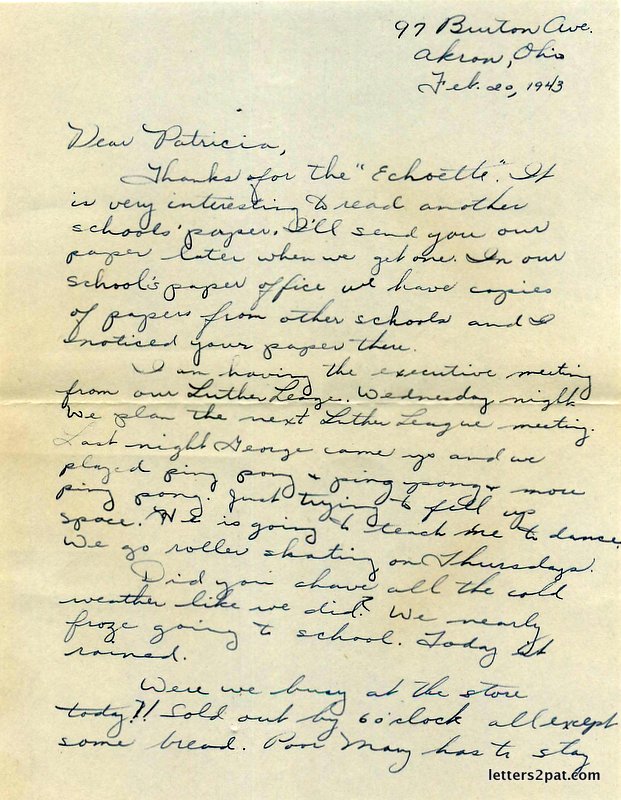 97 Burton Ave.
Akron, Ohio
Feb. 20, 1943
Dear Patricia,
Thanks for the "Echoette". It
is very interesting to read another
schools' paper. I'll send you our
paper later when we get one. In our
school's paper office we have copies
of papers from other schools and I
noticed your paper there.
I am having the executive meeting
from our Luther Leage. Wednesday night
We plan the next Luther League meeting.
Last night George came up and we
played ping pong & ping pong & more
ping pong. Just trying to fill up
space. He is going to teach me to dance.
We go roller skating on Thursdays.
Did you have all the cold
weather like we did? We nearly
froze going to school. Today it
rained.
Were we busy at the store
today?! Sold out by 6 o'clock all except
some bread. Poor Mary has to stay
letters2pat.com